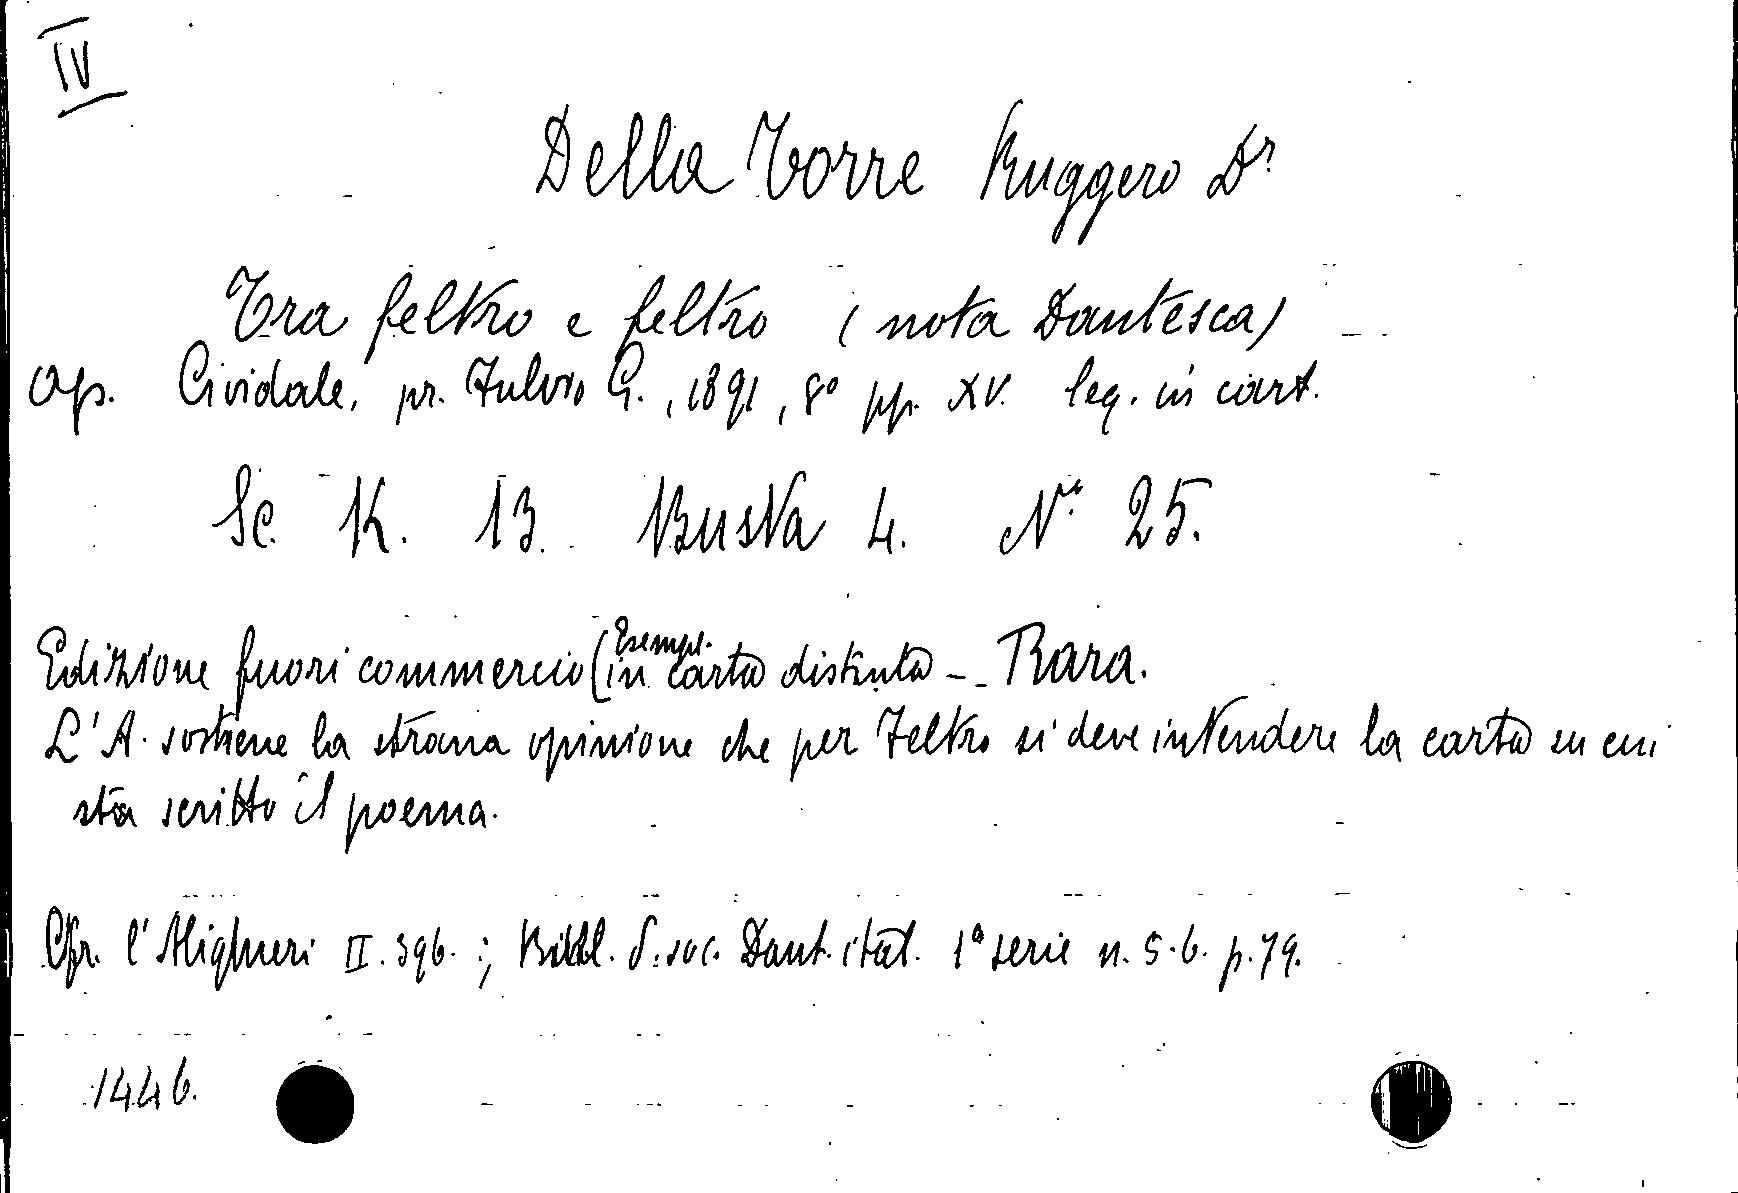 IV
Della Torre Ruggero Dr
Tra feltro e feltro (nota Dantesca)
Op. Cividale, pr. Fulvio G., 1891, 8° pp. XV. leg. in cart.
Sc. K. 13. Busta 4. N. 25.
Edizione fuori commercio (Esempl. in carta distinta - - Rara.
L'A. sostiene la strana opinione che per Feltro si deve intendere la carta su cui
sta scritto il poema.
Cfr. l'Alighieri II. 396. ; Bibl. d. soc. Dant. ital. 1a serie n. 5.6. p. 79.
1446.